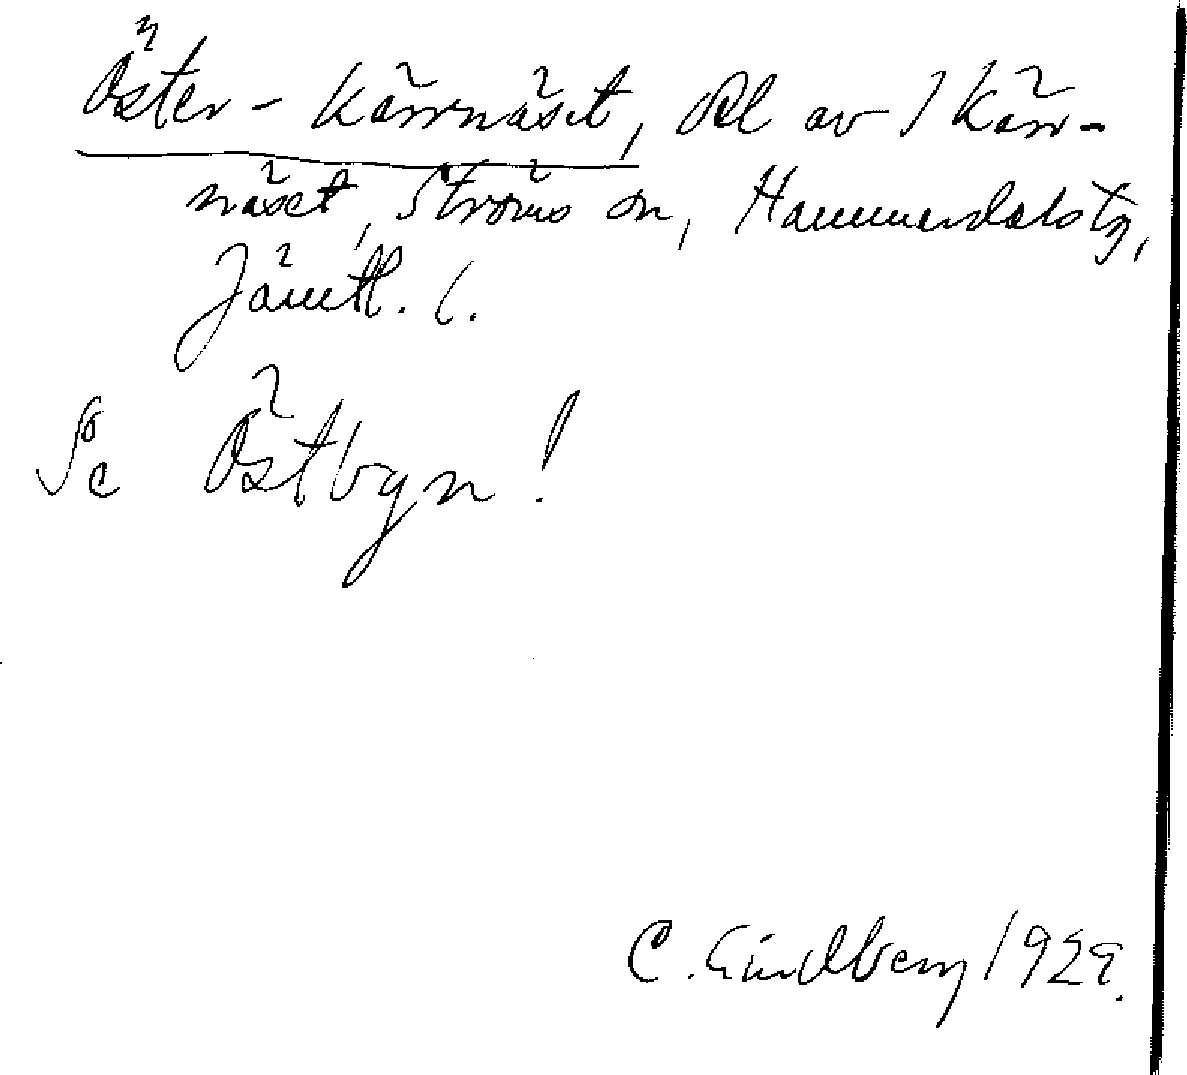 Öster-Kärrnäset, Del av 1 Kärr-
näset, Ströms sn, Hammerdals tg,
Jämtl. l.
Se Östbyn!
C. Lindberg 1929.